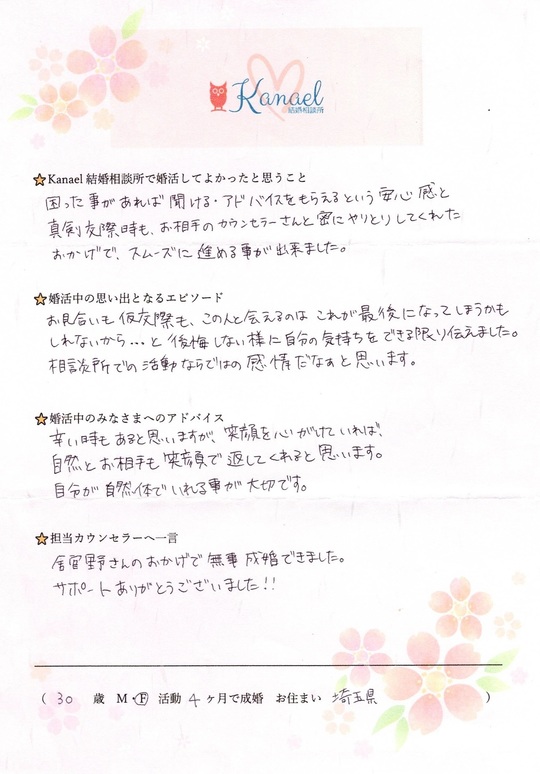 Kanael
結婚相談所
Kanael 結婚相談所で婚活してよかったと思うこと
困った事があれば聞ける・アドバイスをもらえるという安心感と
真剣交際時も、お相手のカウンセラーさんと密にやりとりしてくれた
おかげで、スムーズに進める事が出来ました。
婚活中の思い出となるエピソード
お見合いも仮交際も、この人と会えるのはこれが最後になってしまうかも
しれないから…と後悔しない様に自分の気持ちをできる限り伝えました。
相談所での活動ならではの感情だなぁと思います。
婚活中のみなさまへのアドバイス
辛い時もあると思いますが、笑顔を心がけていれば、
自然とお相手も笑顔で返してくれると思います。
自分が自然体でいれる事が大切です。
担当カウンセラーへ一言
宮野さんのおかげで無事成婚できました。
サポートありがとうございました!!
( 30 歳 M・F 活動 4 ヶ月で成婚 お住まい 埼玉県 )